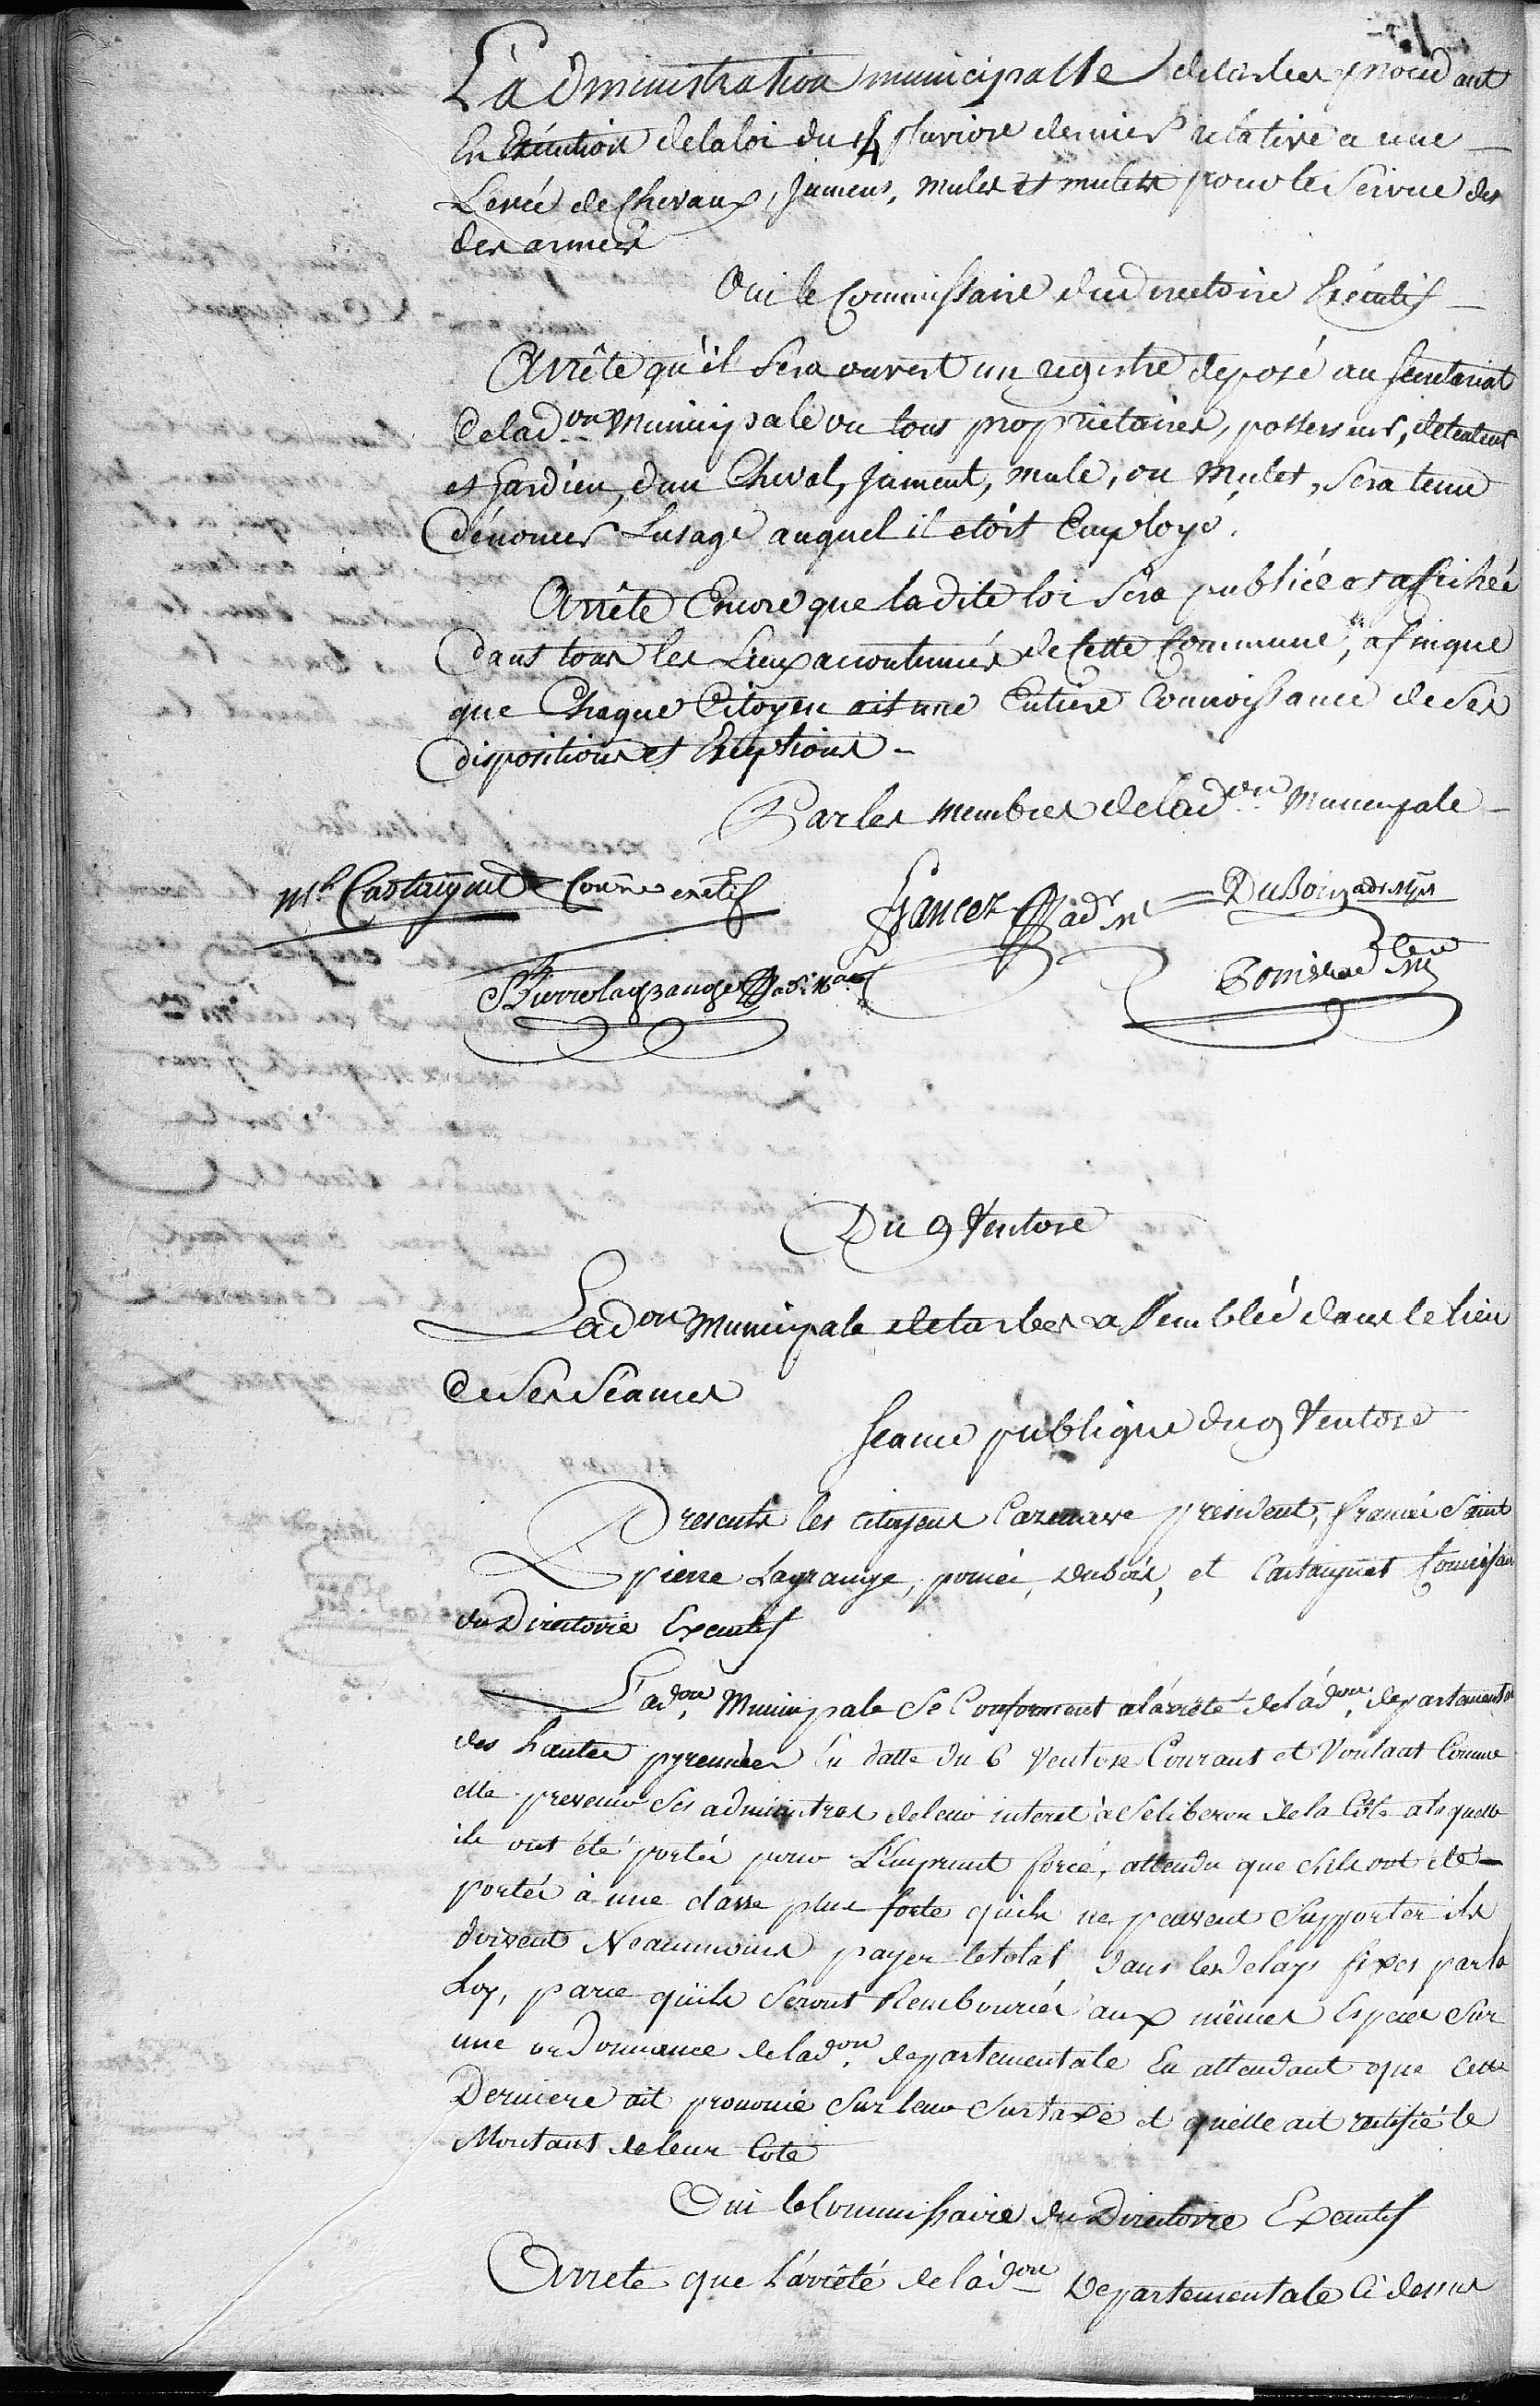 L'administration municipalle de tarbes procedant
En Exécution de la loi du 4 pluviose dernier relative a une
Levée de Chevaux, Jumens, mules et mulets pour le Service des
des armées
Oui le Commissaire du directoire Exécutif
Arrête qu'il Sera ouvert un registre deposé au Secretariat
de lad.on Municipale ou tous proprietaires, possesseurs, detenteurs
et Gardien, d'un Cheval, Jument, mule, ou Mulet, Sera tenu
d'énoncer L'usage auquel il etoit Employé.
Arrête Encore que la dite loi Sera publiée et affichée
dans tous les Lieux accoutumés de Cette Commune, afinque
que Chaque Citoyen ait une Entiere Connoissance de Ses
dispositions et Exeptions
Par les membres de lad.on Municipale
Castaignet Comre exetif
Dubois adr mpl
St Pierre lagrange
Du 9 Ventose
Lad.on Municipale de tarbes assemblée dans le lieu
de Ses Séances
Seance publique du 9 Ventose
Presents les citoyens Cazenave président, francés Saint
pierre Lagrange, poniés, Dubois, et Castaignet Comissaire
du Directoire Executif
L'ad.on Municipale Se Conforment a l'arrêté de l'ad.on departementale
des hautes pyrennées En datte du 6 Ventose Courant et Voulant Comme
elle prevenir Ses administres de leur interet a Se liberer de la Côte a laquelle
ils ont été portés pour L'Emprunt forcé, attendu que S'ils ont été
portés à une classe plus forte qu'ils ne peuvent Supporter ils
doivent Neanmoins payer le total dans les delays fixés par la
Loy, parce qu'ils Seront Remboursés aux mêmes Especes Sur
une ordonnance de lad.on departementale En attendant que Cette
Derniere ait prononcé Sur leur Surtaxe et qu'elle ait rectifié le
Montant de leur Cote
Oui le Commissaire du Directoire Executif
Arrete que L'arrêté de l'ad.on Departementale Ci dessus